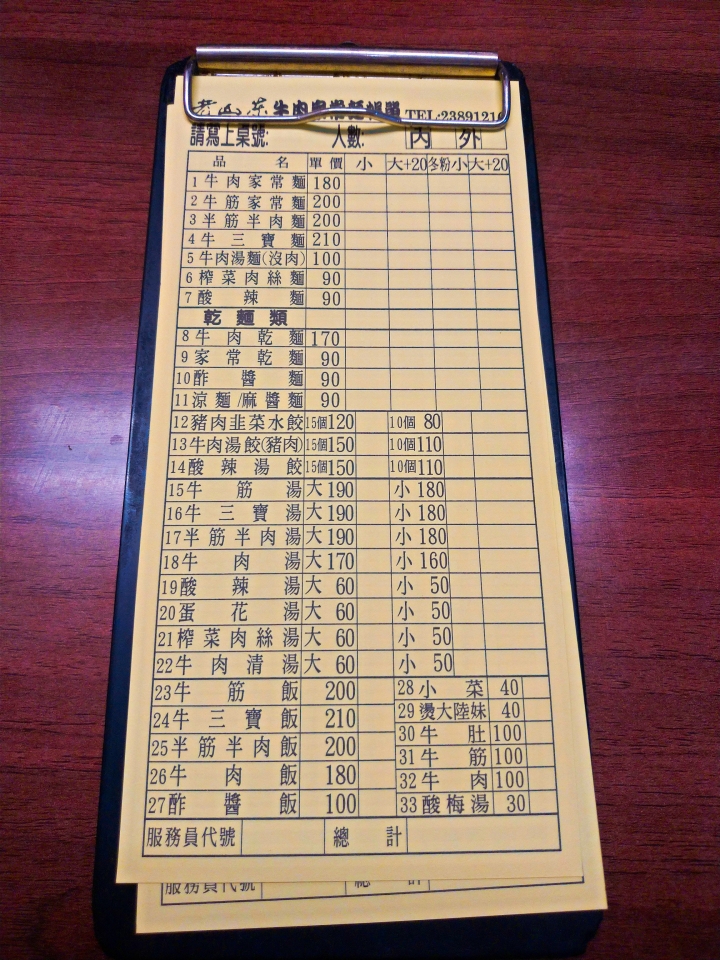 老山东牛肉家常麵帳單 TEL:2389121
請寫上桌號: 人數: 內 外
品名 單價 小 大+20 冬粉小 大+20
1 牛肉家常麵 180
2 牛筋家常麵 200
3 半筋半肉麵 200
4 牛三寶麵 210
5 牛肉湯麵(沒肉) 100
6 榨菜肉絲麵 90
7 酸辣麵 90
乾麵類
8 牛肉乾麵 170
9 家常乾麵 90
10 酢醬麵 90
11 涼麵/麻醬麵 90
12 豬肉韭菜水餃 15個 120 10個 80
13 牛肉湯餃(豬肉) 15個 150 10個 110
14 酸辣湯餃 15個 150 10個 110
15 牛筋湯 大 190 小 180
16 牛三寶湯 大 190 小 180
17 半筋半肉湯 大 190 小 180
18 牛肉湯 大 170 小 160
19 酸辣湯 大 60 小 50
20 蛋花湯 大 60 小 50
21 榨菜肉絲湯 大 60 小 50
22 牛肉清湯 大 60 小 50
23 牛筋飯 200
24 牛三寶飯 210
25 半筋半肉飯 200
26 牛肉飯 180
27 酢醬飯 100
28 小菜 40
29 燙大陸妹 40
30 牛肚 100
31 牛筋 100
32 牛肉 100
33 酸梅湯 30
服務員代號 總計
服務員代號 總計